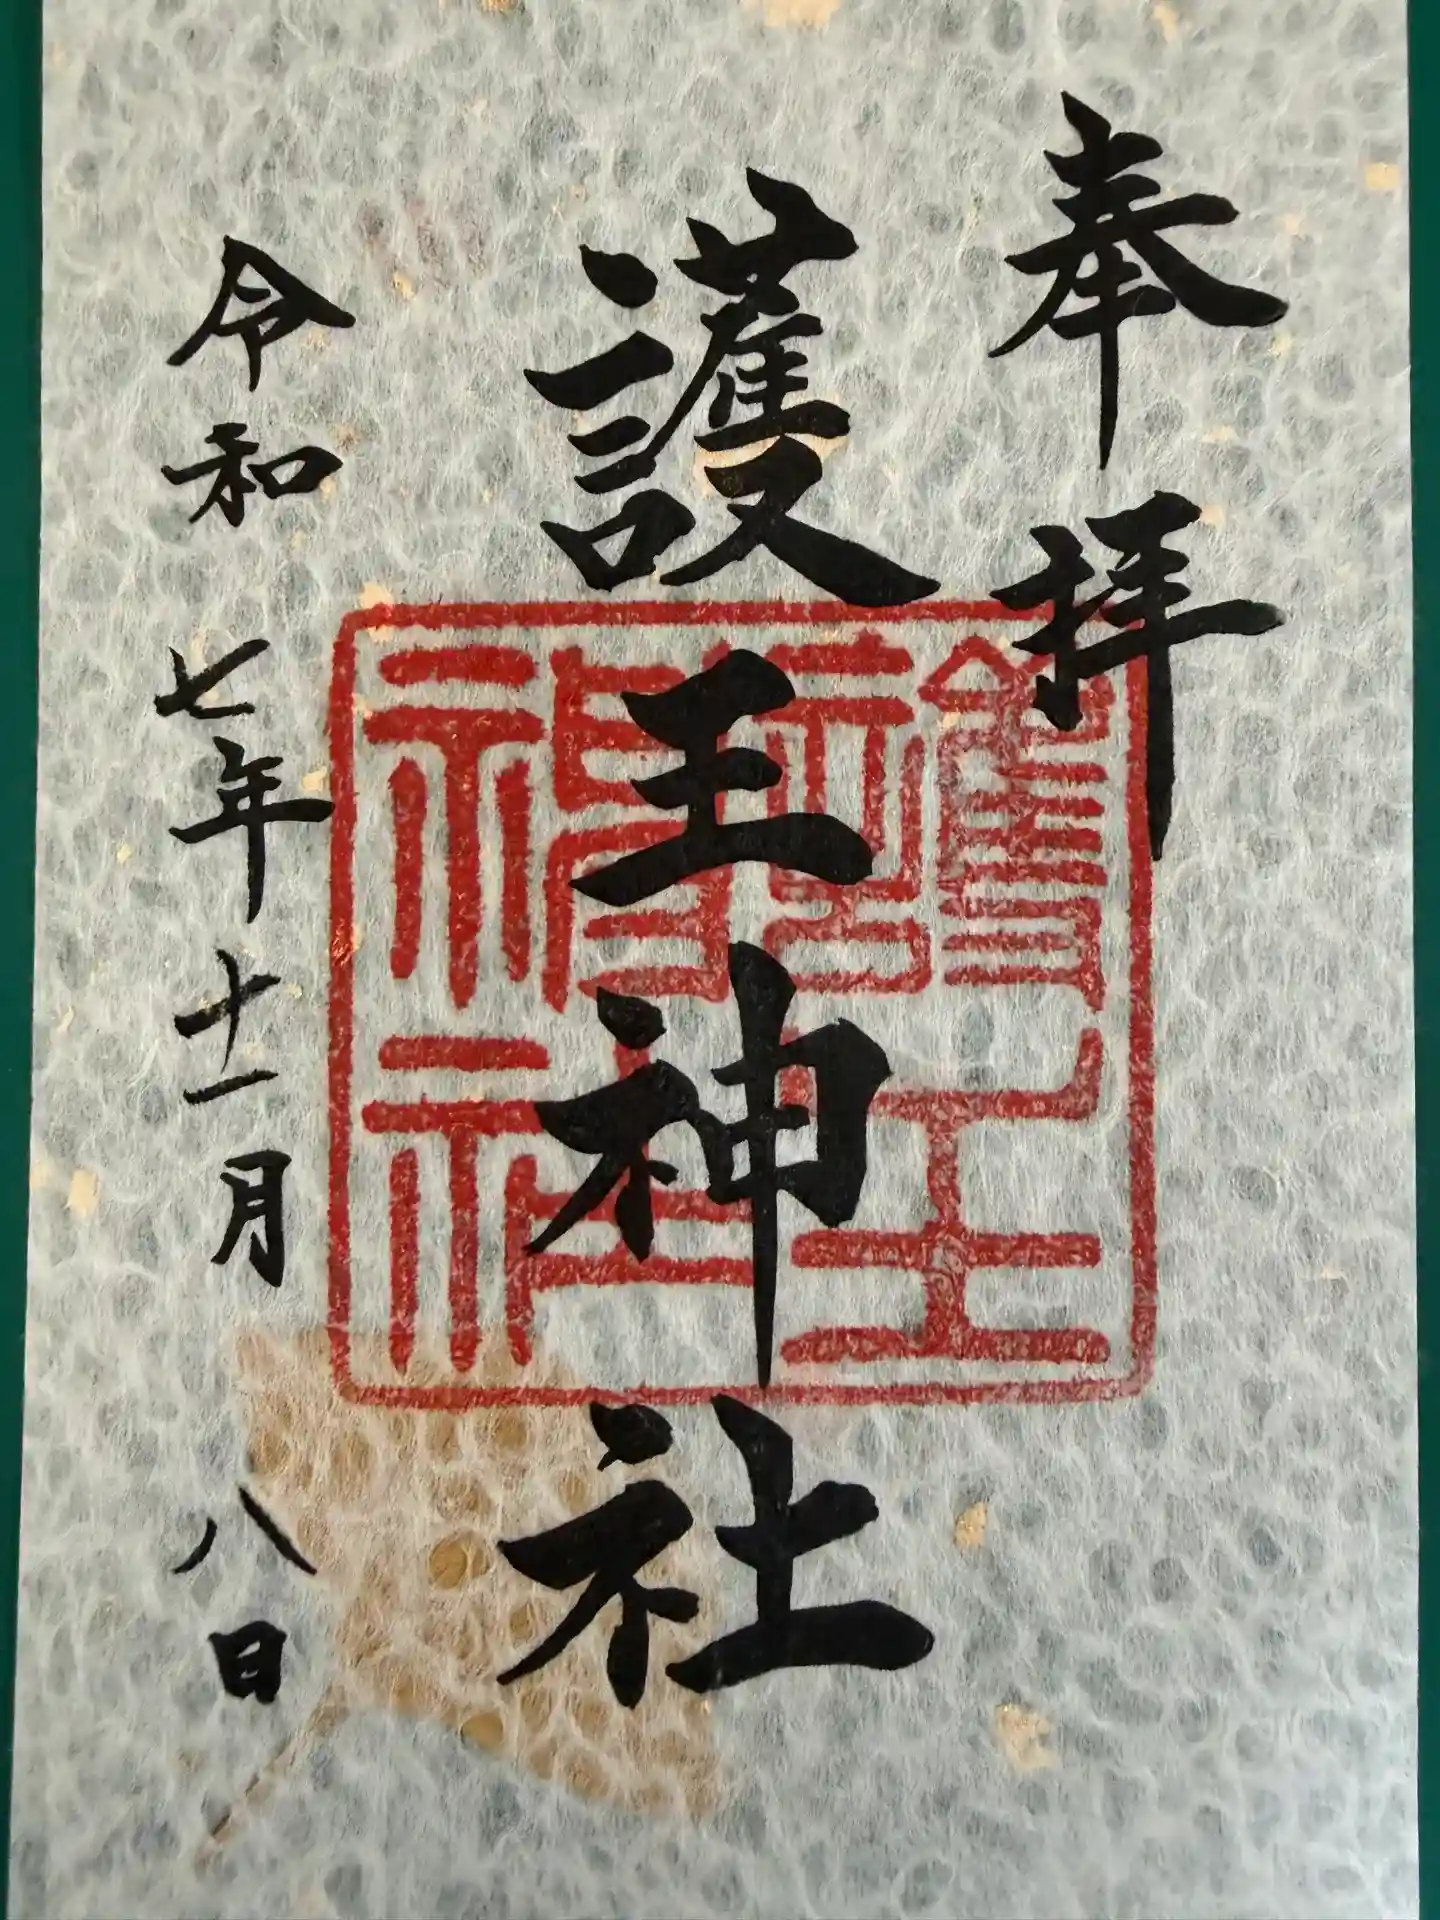 奉拝
護王神社
令和七年十一月八日
護王神社